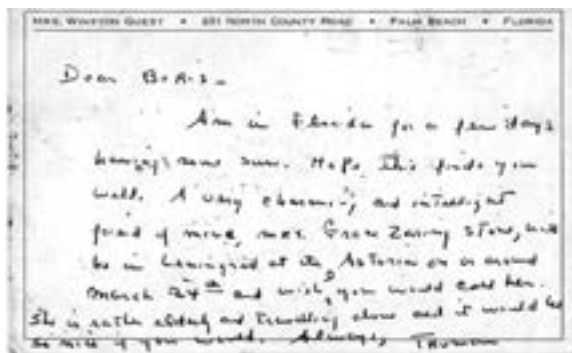 MRS. WINSTON GUEST • 251 NORTH COUNTY ROAD • PALM BEACH • FLORIDA
Dear Boris -
Am in Florida for a few days
having some sun. Hope this finds you
well. A very charming and intelligent
friend of mine, Mrs. Grace Zaring Stone, will
be in Leningrad at the Astoria on or around
March 24th and wish you would call her.
She is rather elderly and travelling alone and it would be
so nice if you would. Always, Truman